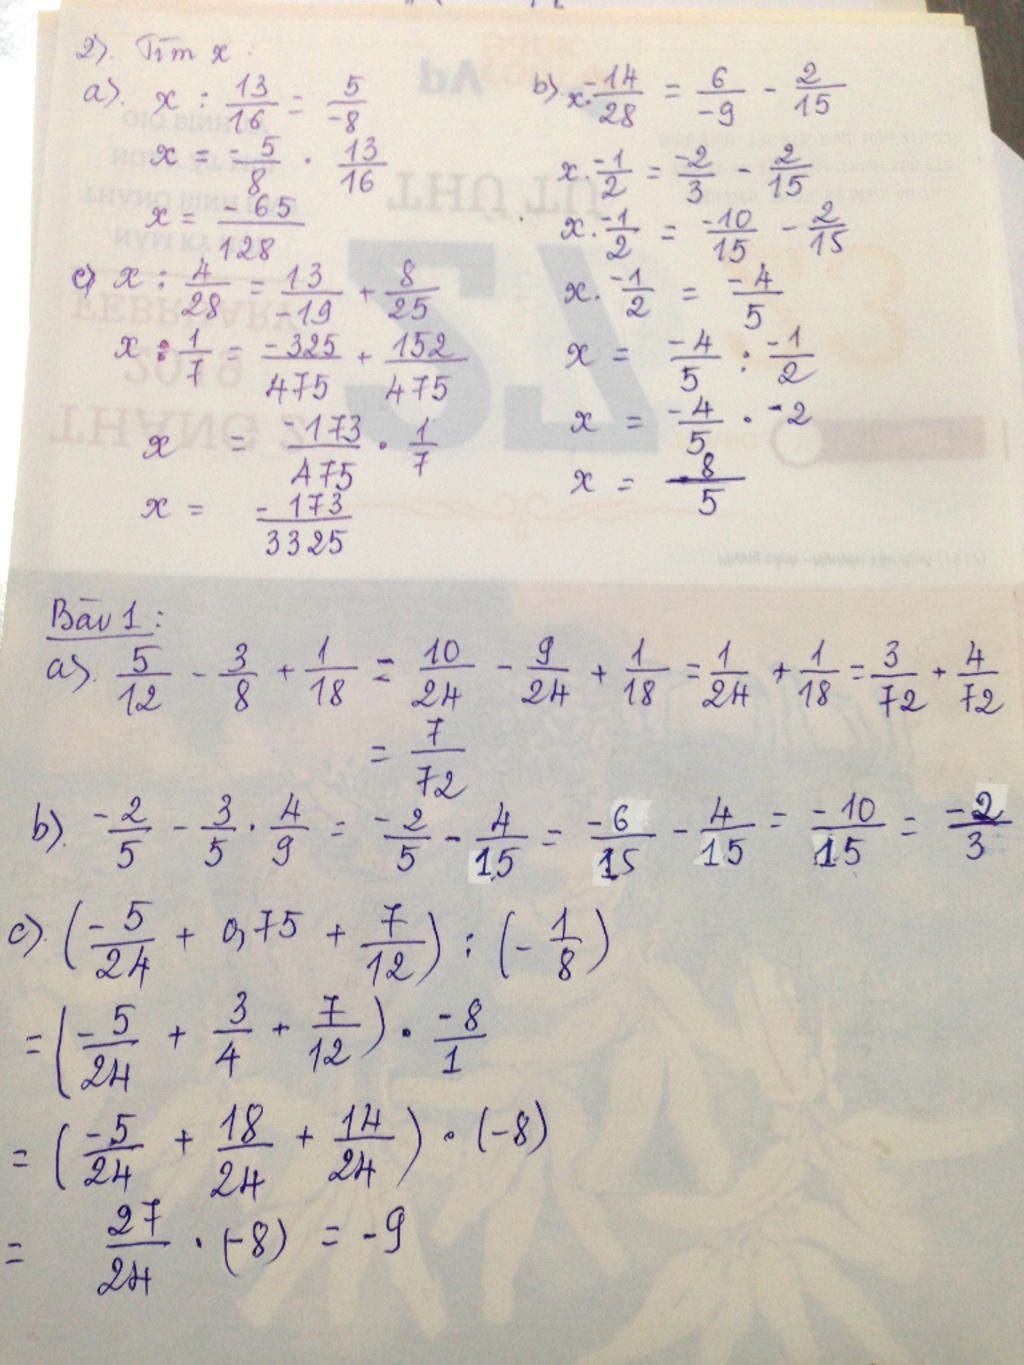 2). Tìm x.
a). x : 13/16 = 5/-8
x = -5/8 . 13/16
x = -65/128
b). x.-14/28 = 6/-9 - 2/15
x.-1/2 = -2/3 - 2/15
x.-1/2 = -10/15 - 2/15
x.-1/2 = -4/5
x = -4/5 : -1/2
x = -4/5 . -2
x = 8/5
c) x : 4/28 = 13/-19 + 8/25
x : 1/7 = -325/475 + 152/475
x = -173/475 . 1/7
x = -173/3325
Bài 1:
a). 5/12 - 3/8 + 1/18 = 10/24 - 9/24 + 1/18 = 1/24 + 1/18 = 3/72 + 4/72
= 7/72
b). -2/5 - 3/5 . 4/9 = -2/5 - 4/15 = -6/15 - 4/15 = -10/15 = -2/3
c). (-5/24 + 0,75 + 7/12) : (-1/8)
= (-5/24 + 3/4 + 7/12) . -8/1
= (-5/24 + 18/24 + 14/24) . (-8)
= 27/24 . (-8) = -9